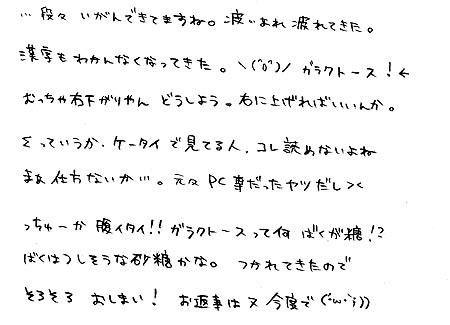 … 段々 いがんできてますね。疲いよれ 疲れてきた。
漢字もわかんなくなってきた。＼(^0^)／ ガラクトース！←
むっちゃ右下がりやん どうしよう。右に上げればいいんか。
とっていうか、ケータイで見てる人、コレ読めないよね
まぁ仕方ないか…。元々PC専だったヤツだし><
っちゅーか 腹イタイ!! ガラクトースって何 ばくが糖!?
ばくはつしそうな砂糖かな。 つかれてきたので
そろそろ おしまい！ お返事はヌ 今度で(^ω^;))